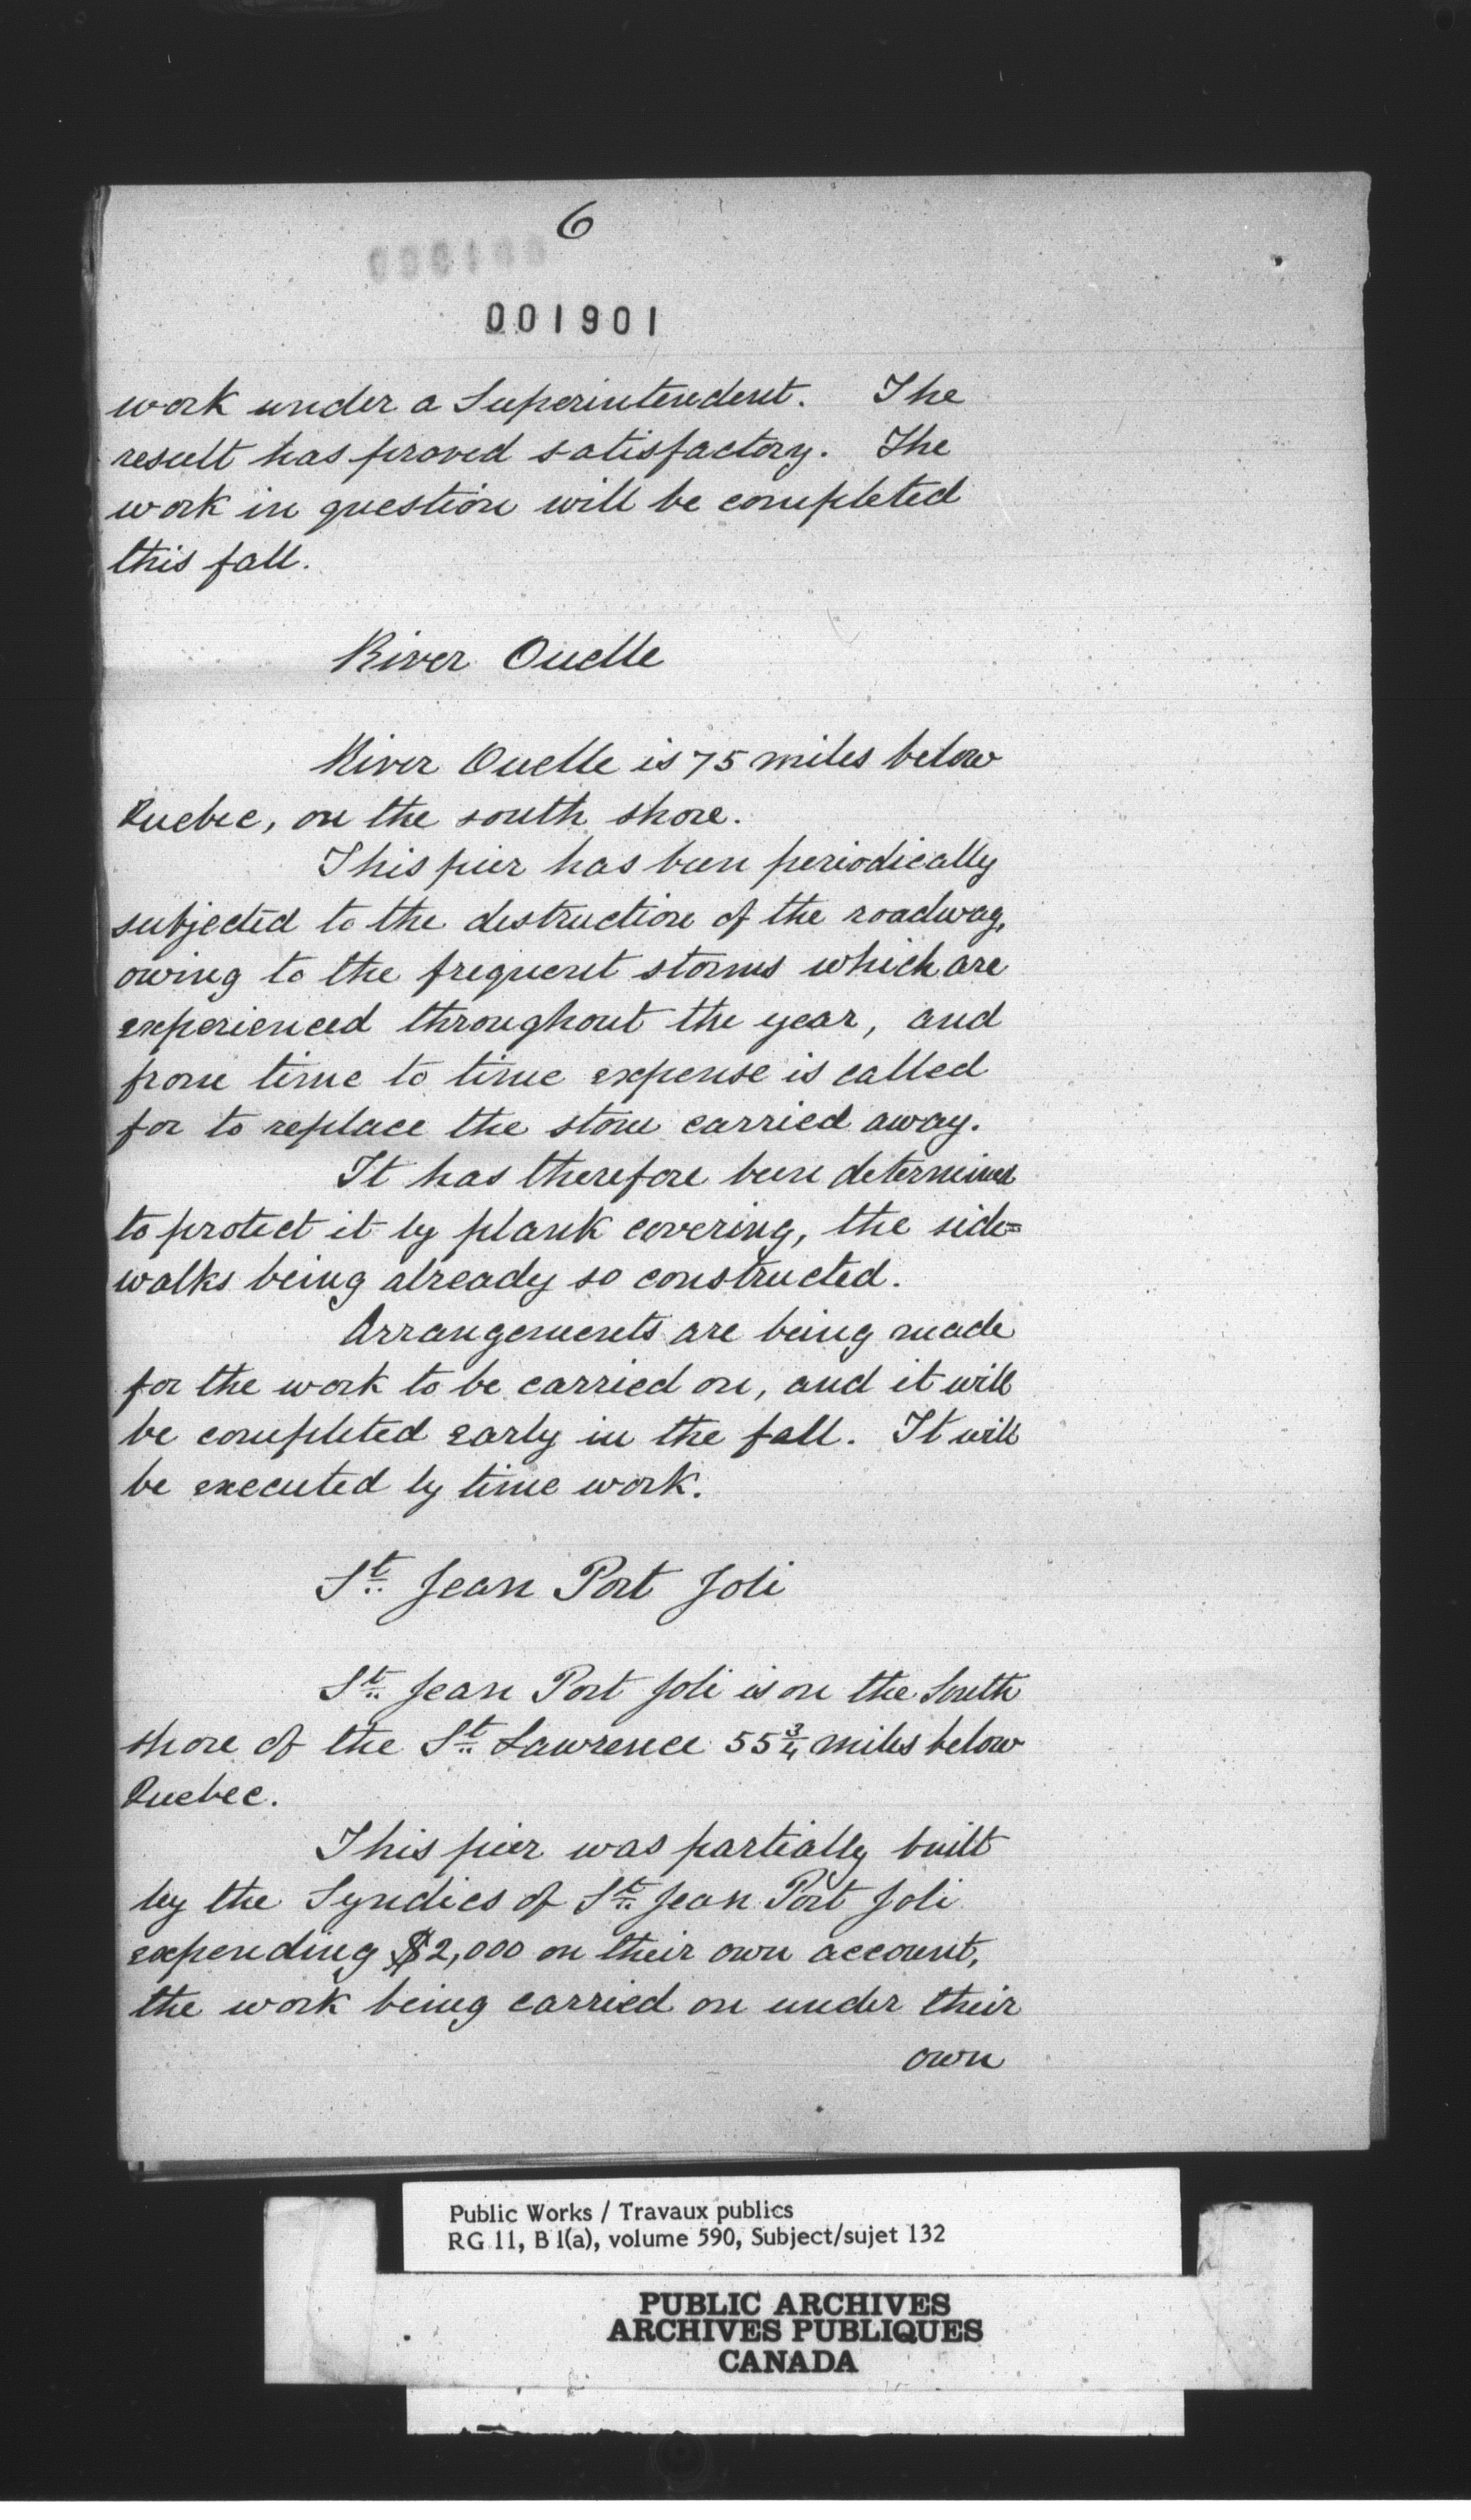 6
001901
work under a Superintendent. The
result has proved satisfactory. The
work in question will be completed
this fall.
River Ouelle
River Ouelle is 75 miles below
Quebec, on the south shore.
This pier has been periodically
subjected to the destruction of the roadway,
owing to the frequent storms which are
experienced throughout the year, and
from time to time expense is called
for to replace the stone carried away.
It has therefore been determined
to protect it by plank covering, the side=
walks being already so constructed.
Arrangements are being made
for the work to be carried on, and it will
be completed early in the fall. It will
be executed by time work.
St. Jean Port Joli
St. Jean Port Joli is on the South
shore of the St. Lawrence 55 3/4 miles below
Quebec.
This pier was partially built
by the Syndics of St. Jean Port Joli
expending $2,000 on their own account,
the work being carried on under their
own
Public Works / Travaux publics
RG 11, B 1(a), volume 590, Subject/sujet 132
PUBLIC ARCHIVES
ARCHIVES PUBLIQUES
CANADA